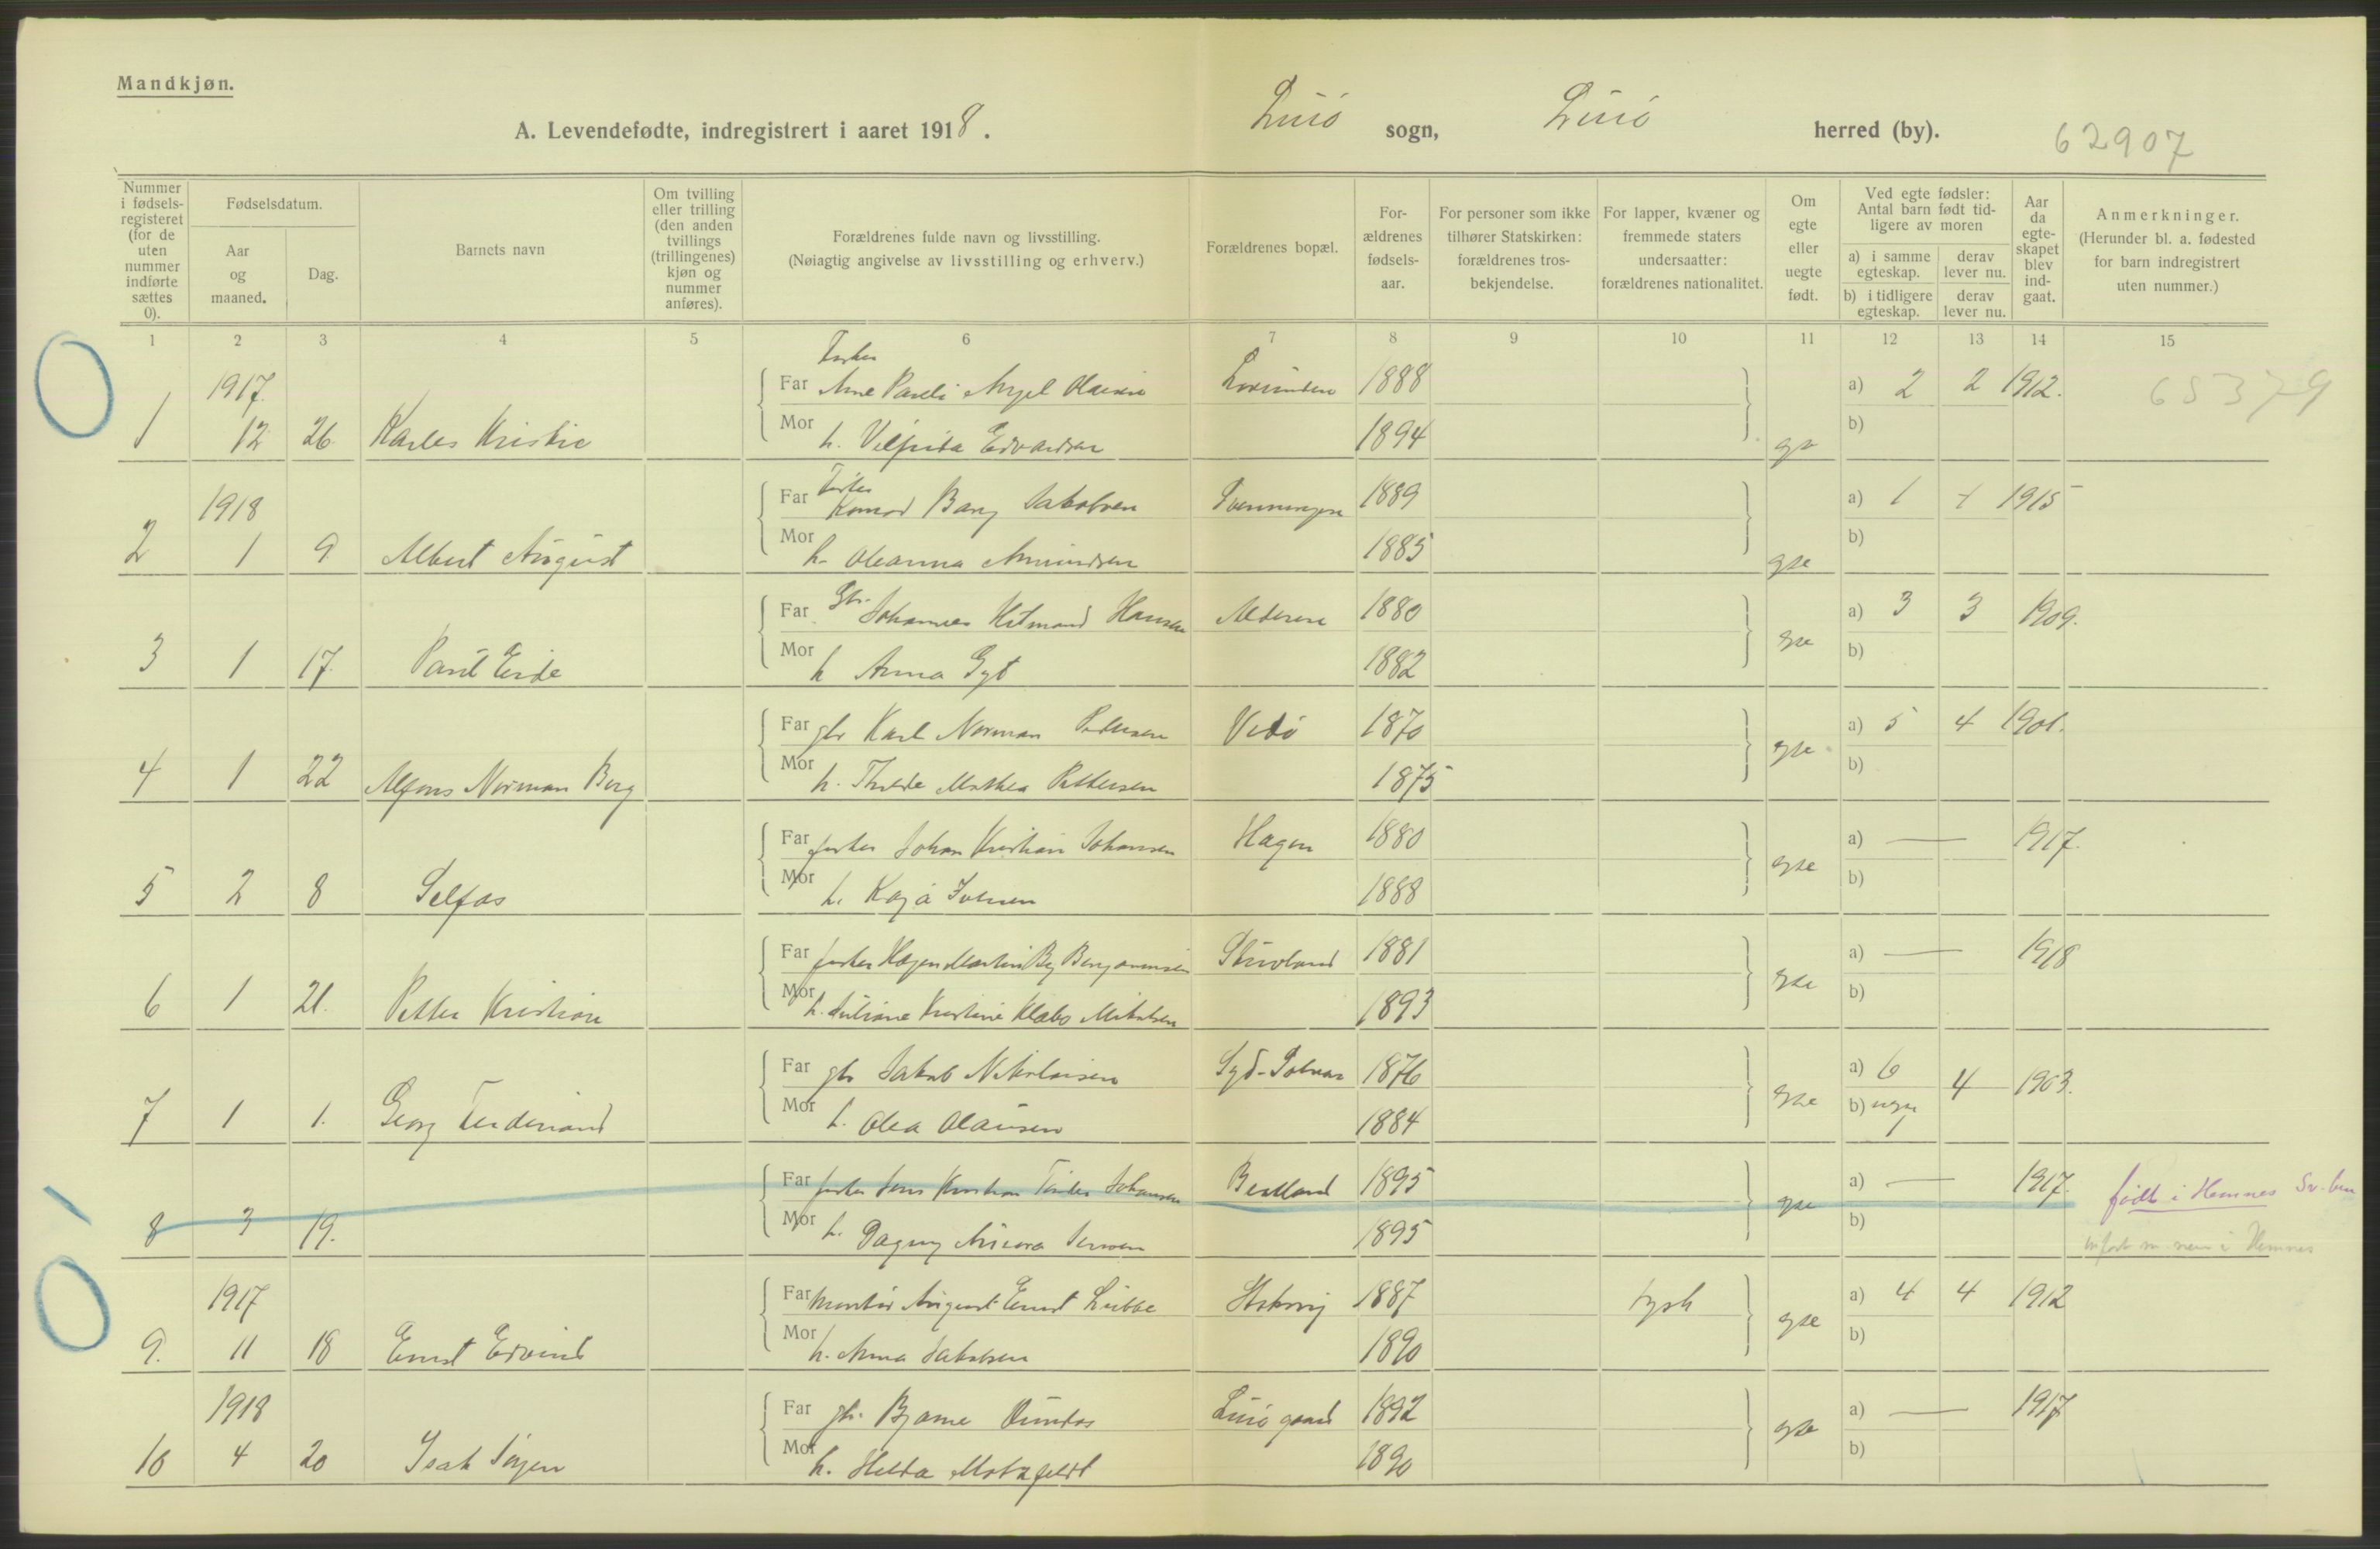 Mandkjøn.
A. Levendefødte, indregistrert i aaret 1918. Lurø sogn, Lurø herred (by). 62907
Nummer i fødselsregisteret (for de uten nummer indførte sættes 0).
Fødselsdatum.
Aar og maaned.
Dag.
Barnets navn
Om tvilling eller trilling (den anden tvillings (trillingenes) kjøn og nummer anføres).
Forældrenes fulde navn og livsstilling.
(Nøiagtig angivelse av livsstilling og erhverv.)
Forældrenes bopæl.
Forældrenes fødselsaar.
For personer som ikke tilhører Statskirken: forældrenes trosbekjendelse.
For lapper, kvæner og fremmede staters undersaatter: forældrenes nationalitet.
Om egte eller uegte født.
Ved egte fødsler: Antal barn født tidligere av moren
a) i samme egteskap. derav lever nu.
b) i tidligere egteskap. derav lever nu.
Aar da egteskapet blev indgaat.
Anmerkninger.
(Herunder bl. a. fødested for barn indregistrert uten nummer.)
1 2 3 4 5 6 7 8 9 10 11 12 13 14 15
Fisker
1917. Far Arne Angel Olaisen Lovunden 1888 a) 2 2 1912. 65379
1 12 26 Karles Kristie Mor h. Edvardsen 1894 b)
Fisker
1918 Far Konrad Berg Jakobsen Svenningen 1889 a) 1 1 1915
2 1 9 Albert August Mor h. Oleanna Amundsen 1885 gte b)
Far Gbr. Johannes Hitmand Hansen Alderen 1880 a) 3 3 1909.
3 1 17. Paul Eide Mor h Anna Gyt 1882 gte b)
Far gbr Karl Norman Pedersen 1870 a) 5 4 1901.
4 1 22 Alfons Norman Berg Mor h. Mathea Pettersen 1875 gte b)
Far fisker Johan Kristian Johansen Hagen 1880 a) — 1917.
5 2 8 Selfas Mor h. Kaja 1888 gte b)
Far fisker Hagen Martin Benjaminsen 1881 a) — 1918
6 1 21. Petter Kristian Mor h. Juliane Kristine Klæbo Mikalsen 1893 gte b)
Far gbr Jakob Nikolaisen Syd-Solvær 1876 a) 6 4 1903.
7 1 1. Georg Ferdinand Mor h. Olea Olausen 1884 gte b) 1
Far fisker Jens Kristian Johansen 1895 a) — 1917. født i Hemnes
8 3 19. Mor h. Dagny Aurora Jensen 1895 gte b)
1917 Far montør August Ernst Lübbe 1887 tysk a) 4 4 1912
9. 11 18 Ernst Edvind Mor h. Anna Jakobsen 1890 gte b)
1918 Far gbr. Bjarne Dundas Lurøgaard 1892 a) — 1917
10 4 20 Isak Jørgen Mor h. Helda Motzfeldt 1890 gte b)